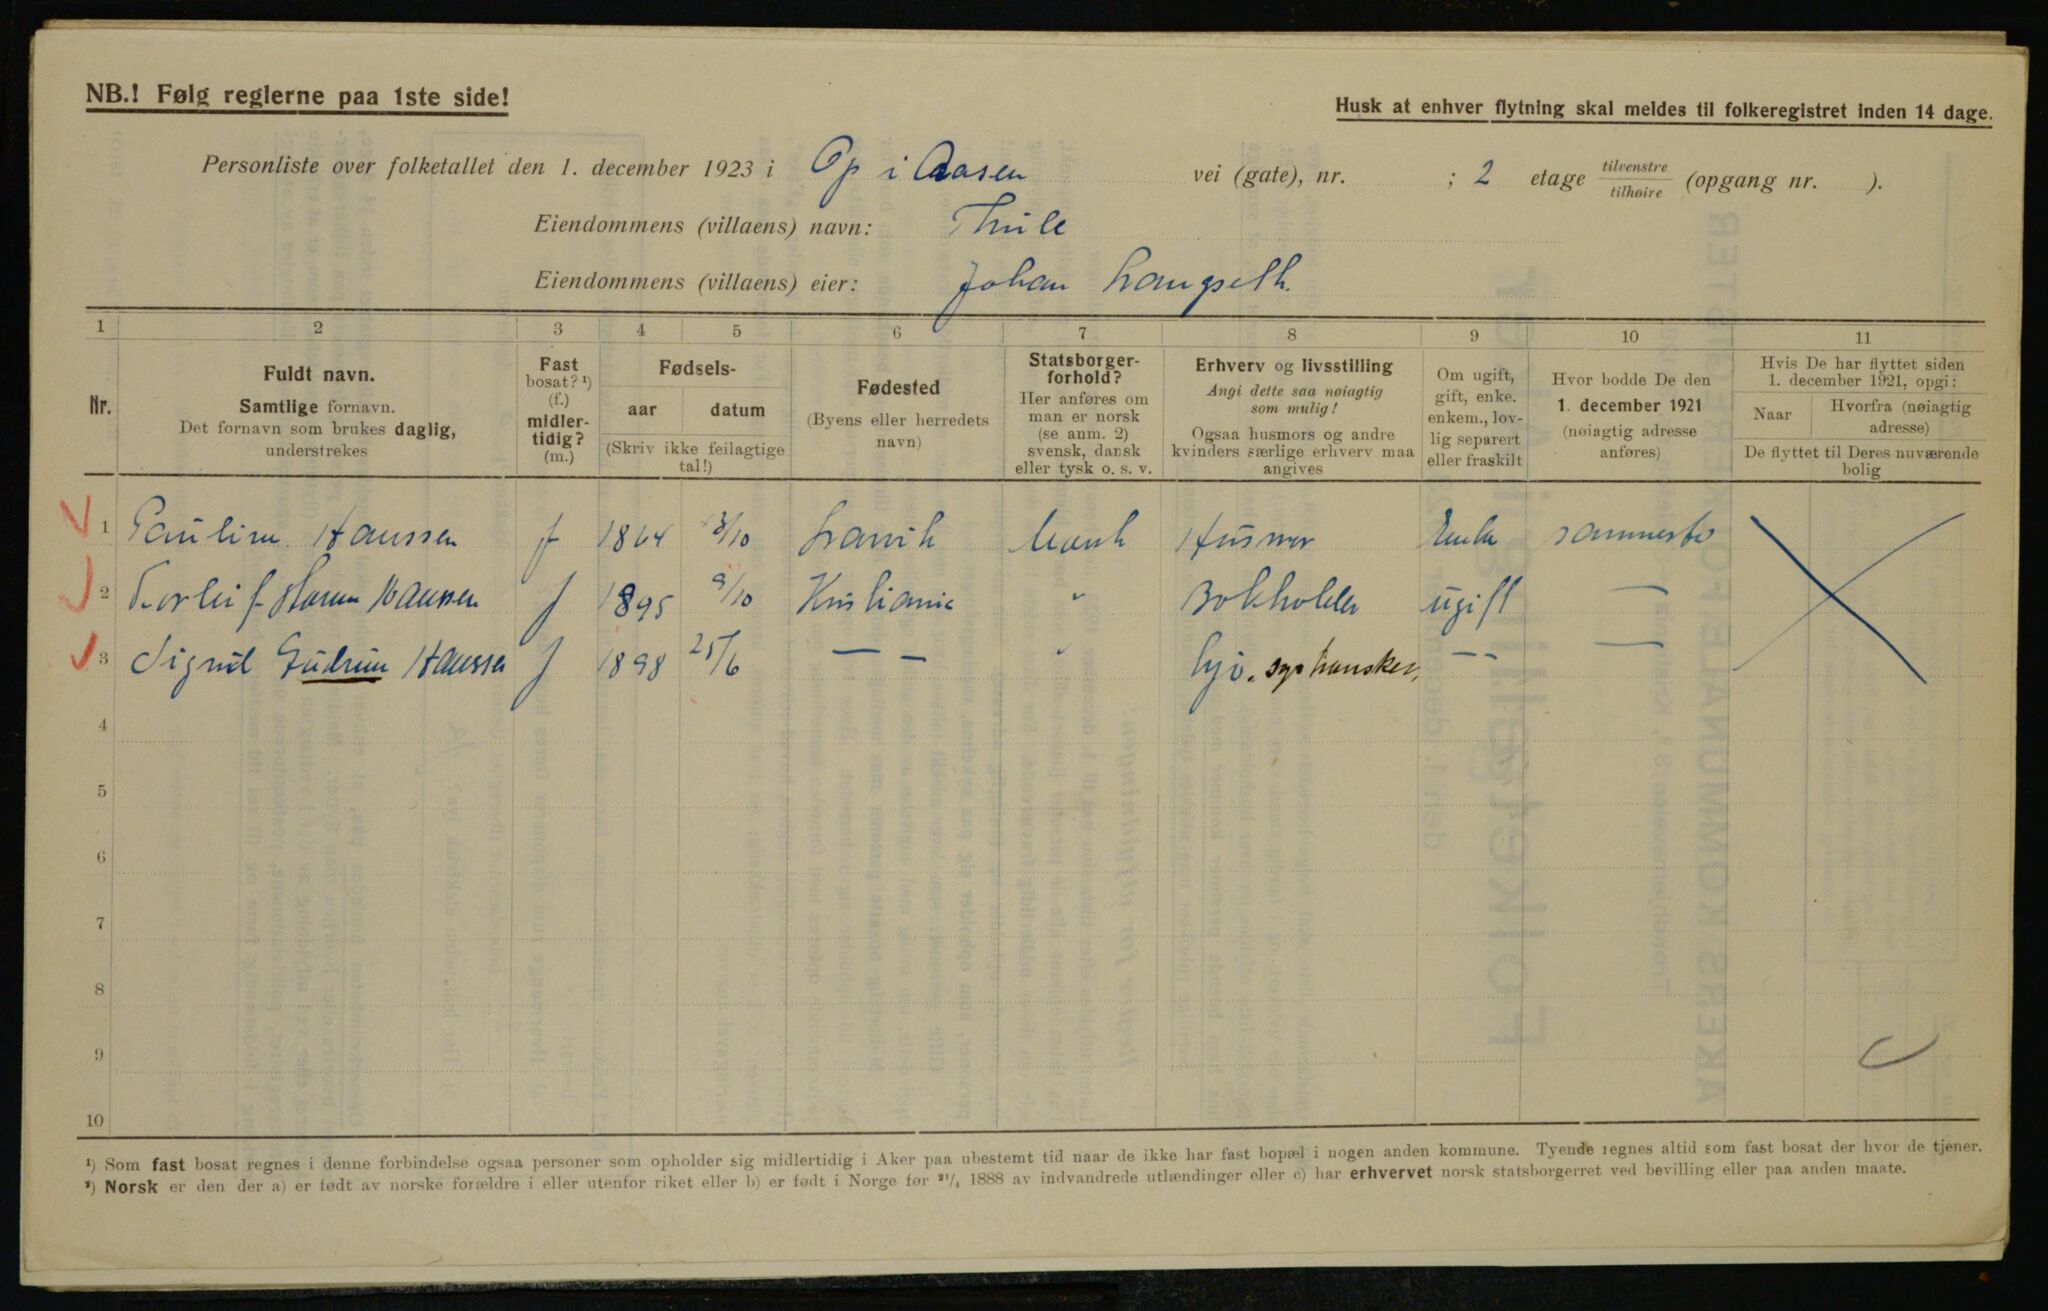 NB.! Følg reglerne paa 1ste side!
Husk at enhver flytning skal meldes til folkeregistret inden 14 dage.
Personliste over folketallet den 1. december 1923 i Op i Aasen vei (gate), nr. ; 2 etage tilvenstre tilhøire (opgang nr. ).
Eiendommens (villaens) navn: Thule
Eiendommens (villaens) eier: Johan Langseth.
1 2 3 4 5 6 7 8 9 10 11
Nr.
Fuldt navn.
Samtlige fornavn.
Det fornavn som brukes daglig,
understrekes
Fast
bosat? ¹)
(f.)
midler-
tidig?
(m.)
Fødsels-
aar datum
(Skriv ikke feilagtige
tal!)
Fødested
(Byens eller herredets
navn)
Statsborger-
forhold?
Her anføres om
man er norsk
(se anm. 2)
svensk, dansk
eller tysk o. s. v.
Erhverv og livsstilling
Angi dette saa nøiagtig
som mulig!
Ogsaa husmors og andre
kvinders særlige erhverv maa
angives
Om ugift,
gift, enke.
enkem., lov-
lig separert
eller fraskilt
Hvor bodde De den
1. december 1921
(nøiagtig adresse
anføres)
Hvis De har flyttet siden
1. december 1921, opgi:
Naar
Hvorfra (nøiagtig
adresse)
De flyttet til Deres nuværende
bolig
1 Pauline Hanssen f 1864 13/10 Larvik Norsk Husmor Enke sammested
2 Torleif Hanssen f 1895 9/10 Kristiania " Bokholder ugift —
3 Sigrid Gudrun Hanssen f 1898 25/6 — — " hjv. syr hansker, -- —
4
5
6
7
8
9
10
¹) Som fast bosat regnes i denne forbindelse ogsaa personer som opholder sig midlertidig i Aker paa ubestemt tid naar de ikke har fast bopæl i nogen anden kommune. Tyende regnes altid som fast bosat der hvor de tjener.
²) Norsk er den der a) er født av norske forældre i eller utenfor riket eller b) er født i Norge før ²¹/₄ 1888 av indvandrede utlændinger eller c) har erhvervet norsk statsborgerret ved bevilling eller paa anden maate.